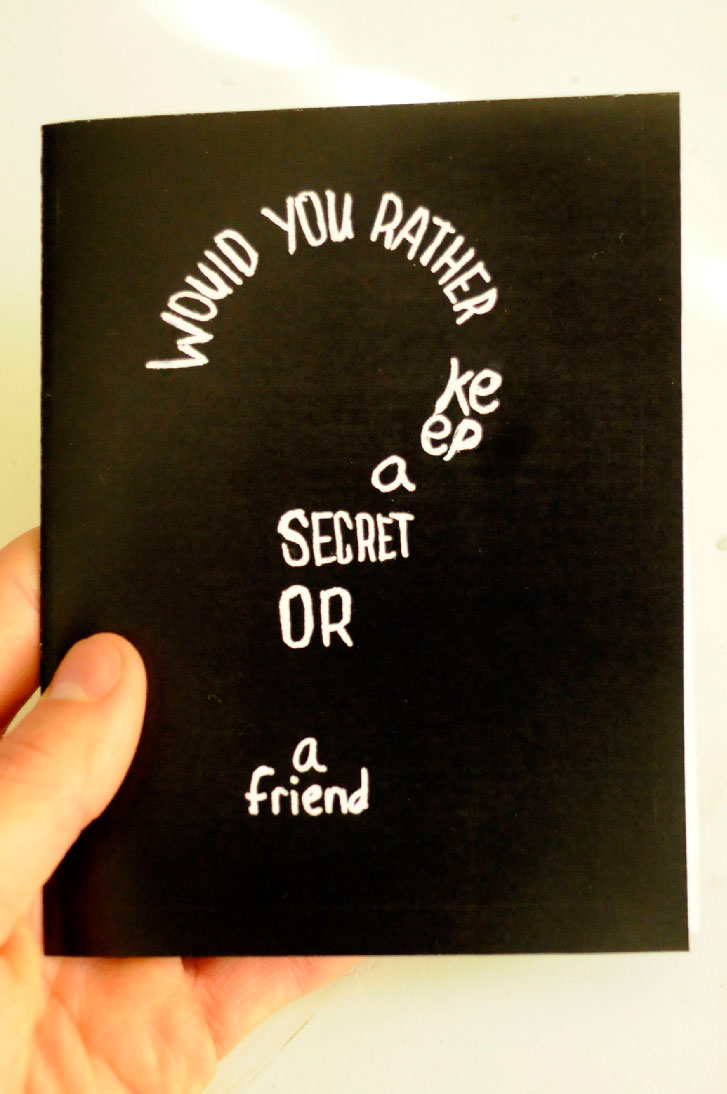 WOULD YOU RATHER
ke
ep
a
SECRET
OR
a
friend